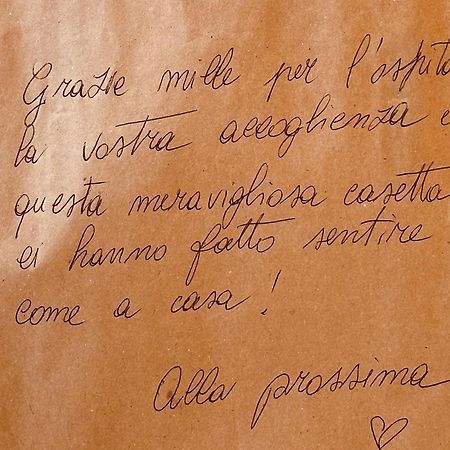 Grazie mille per l'ospita
la vostra accoglienza e
questa meravigliosa casetta
ci hanno fatto sentire
come a casa!
Alla prossima
♡